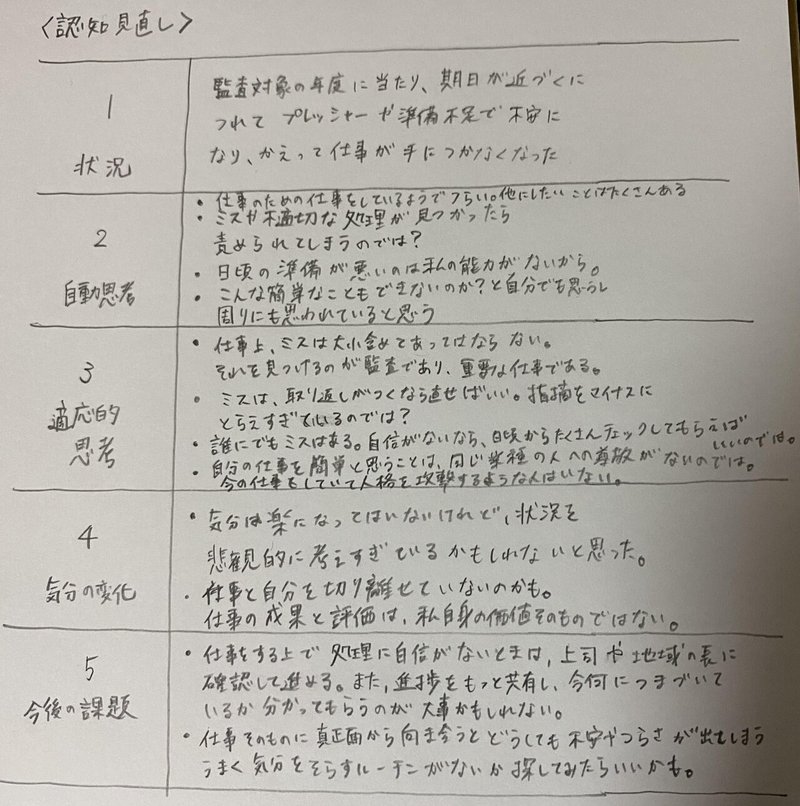 〈認知見直し〉
1
状況
監査対象の年度に当たり、期日が近づくに
つれて プレッシャーや準備不足で不安に
なり、かえって仕事が手につかなくなった
2
自動思考
・仕事のための仕事をしているようでつらい。他にしたいことはたくさんある
・ミスや不適切な処理が見つかったら
責められてしまうのでは?
・日頃の準備が悪いのは私の能力がないから。
・こんな簡単なこともできないのか?と自分でも思うし
周りにも思われていると思う
3
適応的
思考
・仕事上、ミスは大小含めてあってはならない。
それを見つけるのが監査であり、重要な仕事である。
・ミスは、取り返しがつくなら直せばいい。指摘をマイナスに
とらえすぎているのでは?
・誰にでもミスはある。自信がないなら、日頃からたくさんチェックしてもらえば
いいのでは。
・自分の仕事を簡単と思うことは、同じ業種の人への尊敬がないのでは。
今の仕事をしていて人格を攻撃するような人はいない。
4
気分の変化
・気分は楽になってはいないけれど、状況を
悲観的に考えすぎているかもしれないと思った。
・仕事と自分を切り離せていないのかも。
仕事の成果と評価は、私自身の価値そのものではない。
5
今後の課題
・仕事をする上で処理に自信がないときは、上司や地域の長に
確認して進める。また、進捗をもっと共有し、今何につまづいて
いるか分かってもらうのが大事かもしれない。
・仕事そのものに真正面から向き合うとどうしても不安やつらさが出てしまう
うまく気分をそらすルーチンがないか探してみたらいいかも。